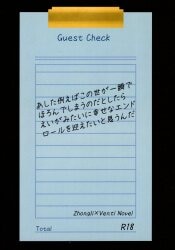 Guest Check
あした例えばこの世が一瞬で
ほろんでしまうのだとしたら
えいがみたいに幸せなエンド
ロールを迎えたいと思うんだ
Zhongli×Venti Novel
Total
R18